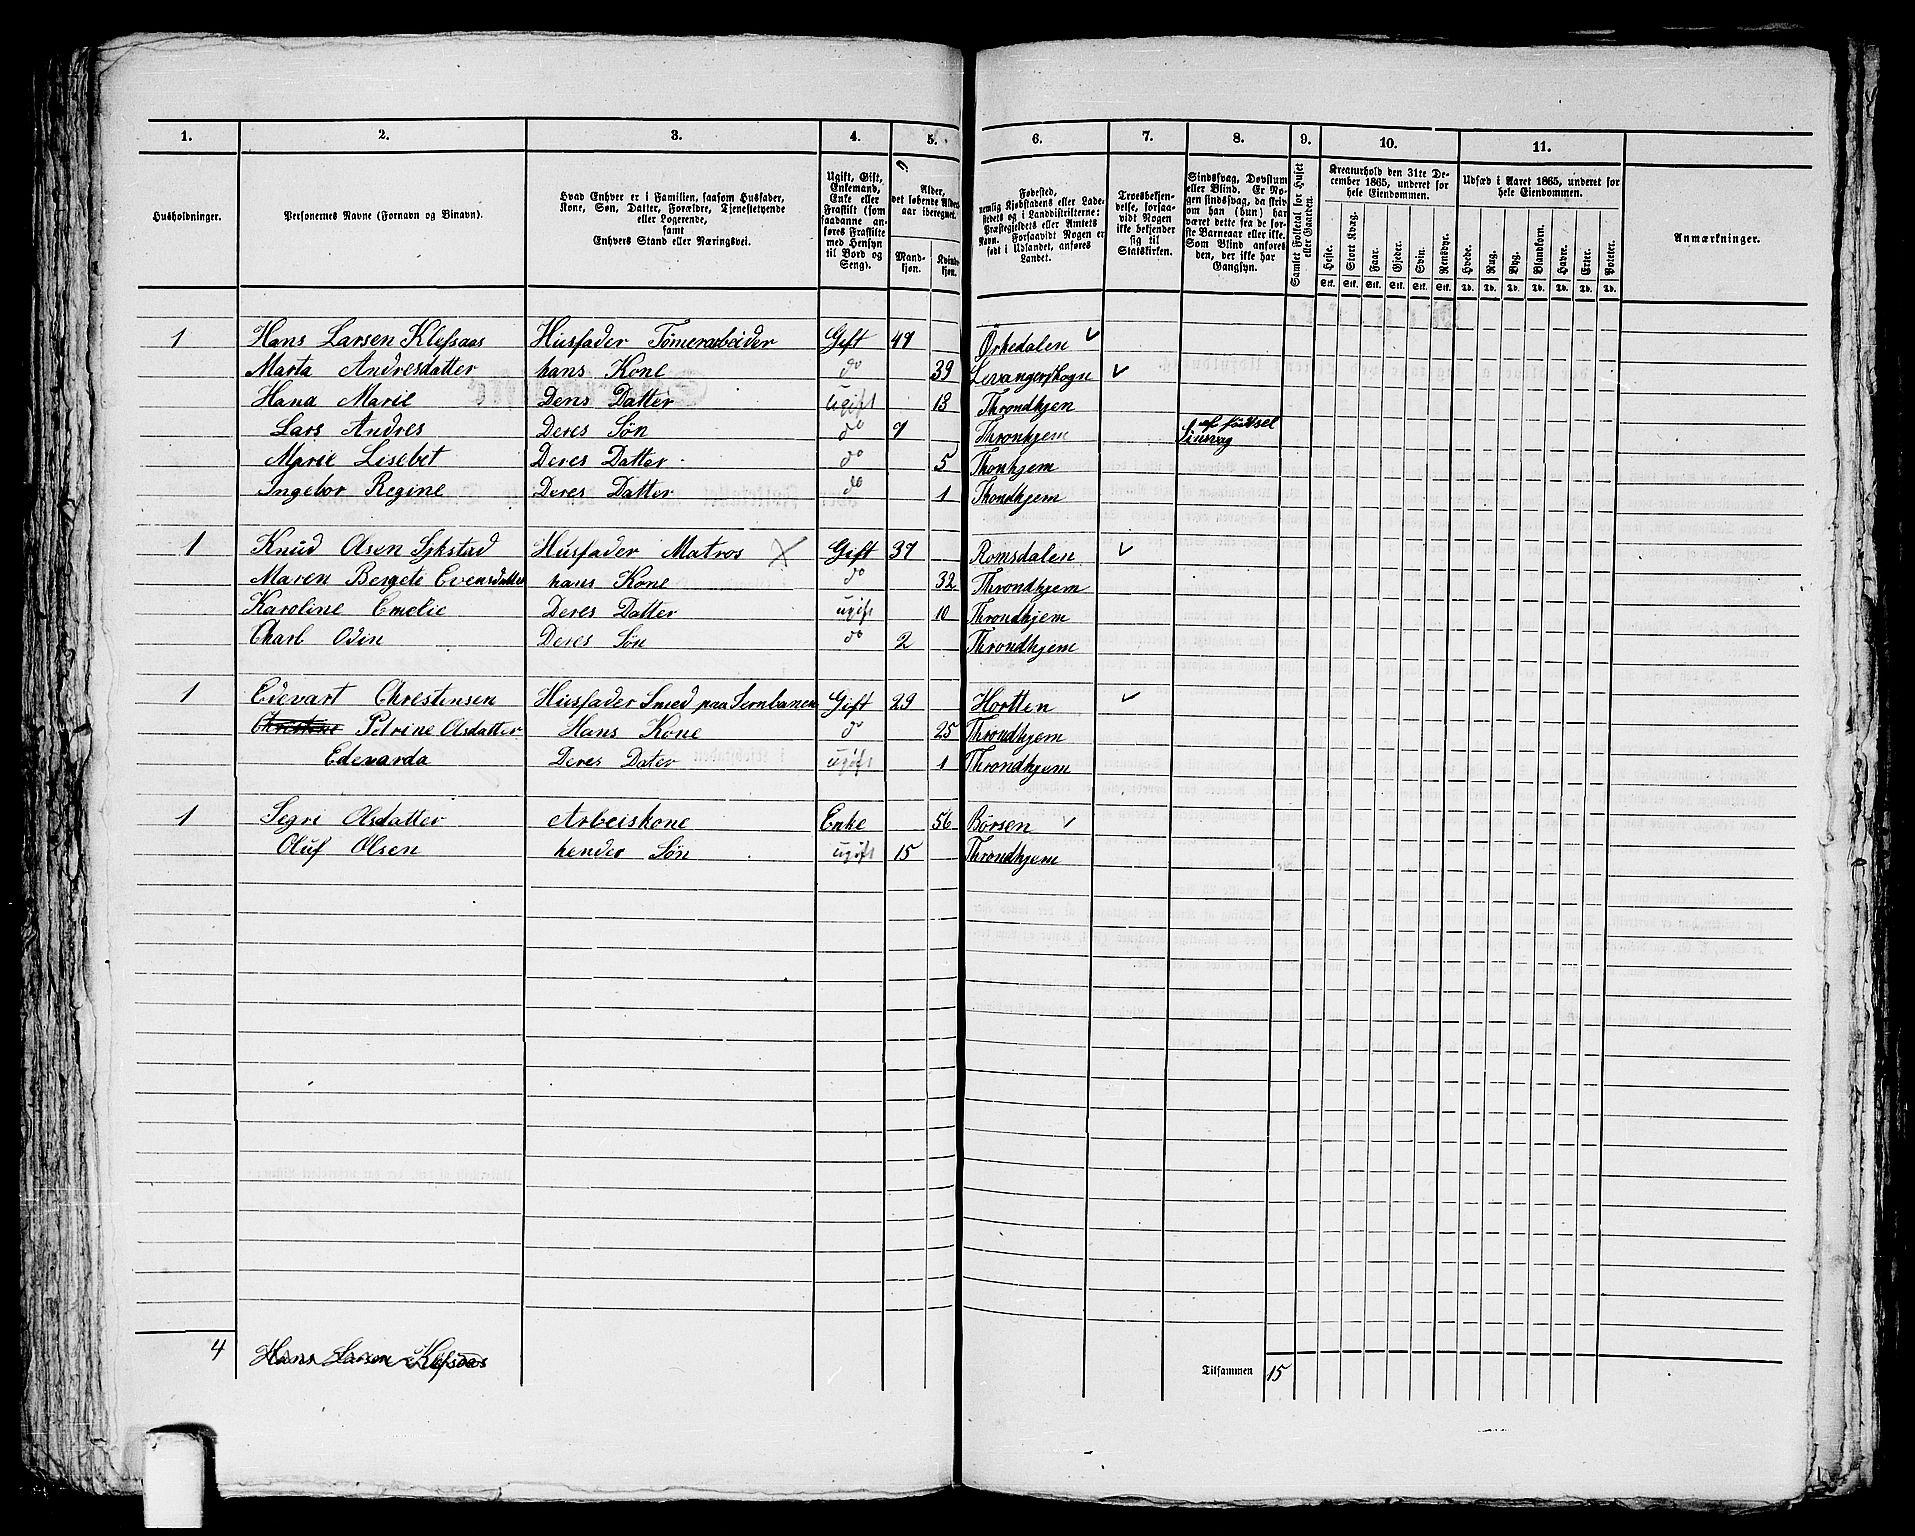 1. 2. 3. 4. 5. 6. 7. 8. 9. 10. 11.
Husholdninger.
Personernes Navne (Fornavn og Binavn).
Hvad Enhver er i Familien, saasom Husfader, Kone, Søn, Datter, Forældre, Tjenestetyende eller Logerende, samt Enhvers Stand eller Næringsvei.
Ugift, Gift, Enkemand, Enke eller Fraskilt (som saadanne anføres Fraskilte med Hensyn til Bord og Seng).
Alder, det løbende Aldersaar iberegnet.
Mandkjøn. Kvindekjøn.
Fødested, nemlig Kjøbstadens eller Ladestedets og i Landdistrikterne: Præstegjeldets eller Amtets Navn. Forsaavidt Nogen er født i Udlandet, anføres Landet.
Troesbekjendelse, forsaavidt Nogen ikke bekjender sig til Statskirken.
Sindssvag, Døvstum eller Blind. Er Nogen sindssvag, da skriv om han (hun) har været dette fra de første Barneaar eller ikke. Som Blind anføres den, der ikke har Gangsyn.
Samlet Folketal for Huset eller Gaarden.
Kreaturhold den 31te December 1865, underet for hele Eiendommen.
Heste. Stort Kvæg. Faar. Gjeder. Svin. Rensdyr.
Stk. Stk. Stk. Stk. Stk. Stk.
Udsæd i Aaret 1865, underet for hele Eiendommen.
Hvede. Rug. Byg. Blandkorn. Havre. Erter. Poteter.
Td. Td. Td. Td. Td. Td. Td.
Anmærkninger.
1 Hans Larsen Klefsaas Husfader Tømerarbeider Gift 47 Örkedalen
Marta Andresdatter hans Kone do 39 Levangerskogn
Hana Marie Dens Datter ugift 13 Throndhjen
Lars Andres Deres Søn do 7 Thronhjem Sinsvag af födtsel
Marie Lisebet Deres Datter do 5 Thonhjem
Ingebor Regine Deres Datter do 1 Thondhjem
1 Knud Olsen Sykstad Husfader Matros Gift 37 Romsdalen
Maren Bergete Evensdatter hans Kone do 32 Throndhjem
Karoline Emelie Deres Datter ugift 10 Throndhjem
Charl Odin Deres Søn do 2 Throndhjem
1 Edevart Chrestensen Husfader Smed paa Jernbanen Gift 29 Hortten
Chrestene Petrine Olsdatter Hans Kone do 25 Throndhjem
Edevarda Deres Dater ugift 1 Throndhjem
1 Segri Olsdatter Arbeiskone Enke 56 Börsen
Oluf Olsen hender Søn ugift 15 Throndhjem
4 Hans Larsen Klefsaas
Tilsammen 15